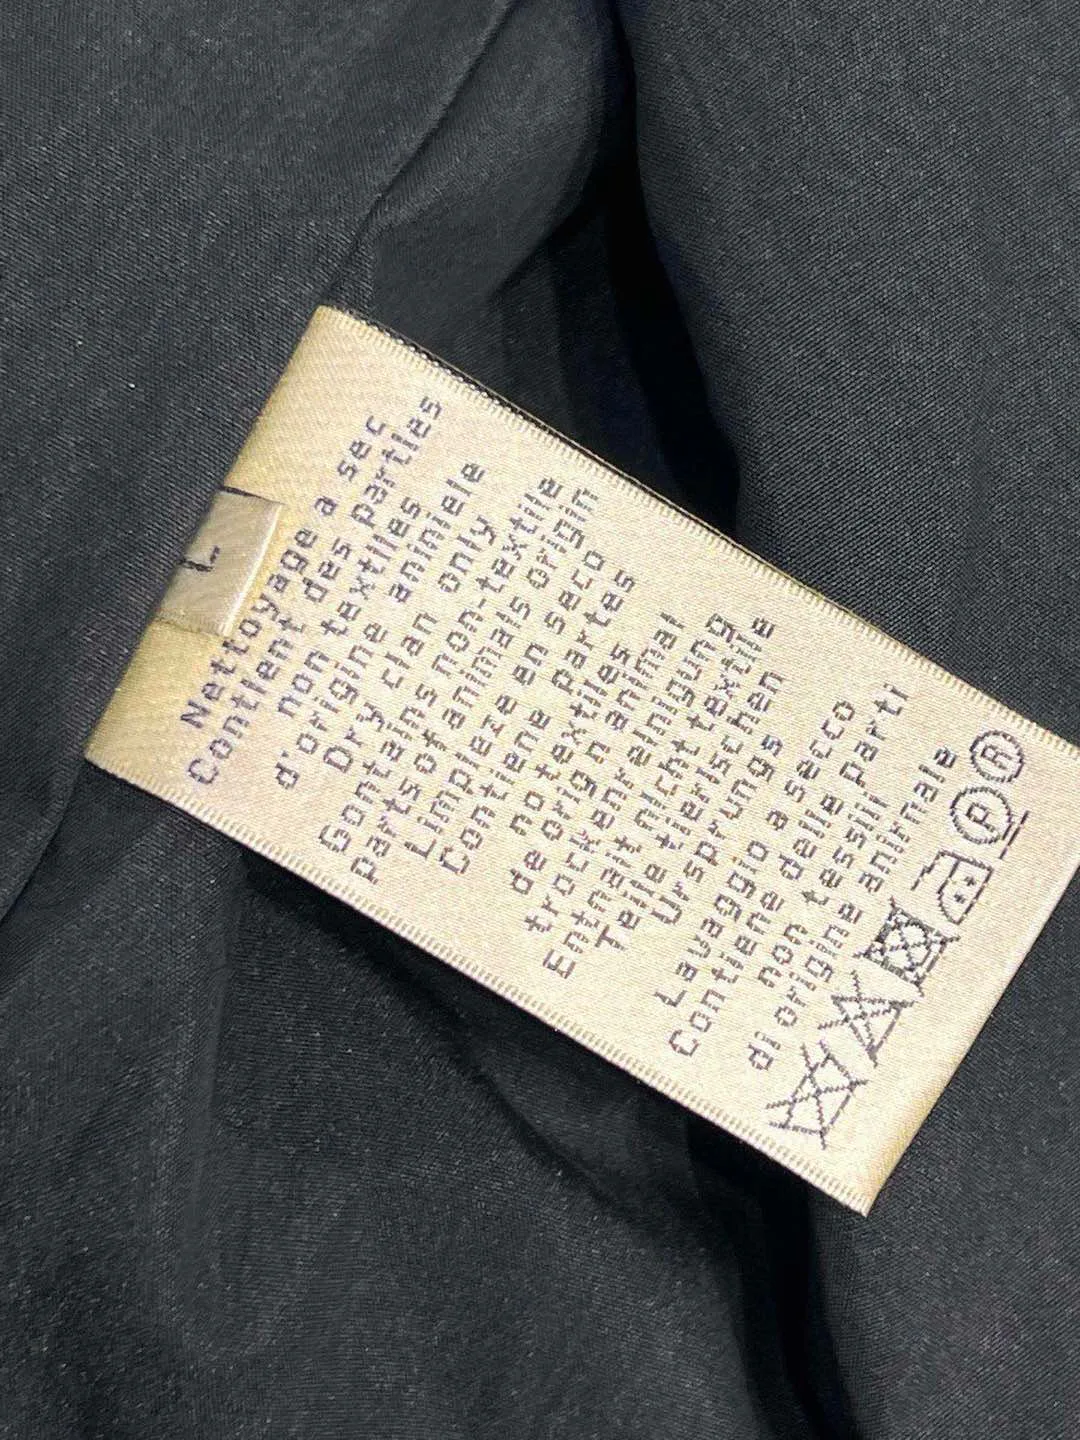 L
Nettoyage a sec
Contient des parties
non textiles
d'origine aniniele
Dry clan only
Contains non-textile
partsofanimals origin
Limpieze en seco
Contiene partes
no textiles
de orign animal
trockenrehigung
Entnait nicht textile
Teile tierischen
Ursprungs
Lavaggio a secco
Contiene delle parti
non tessili
di origine animale
P A